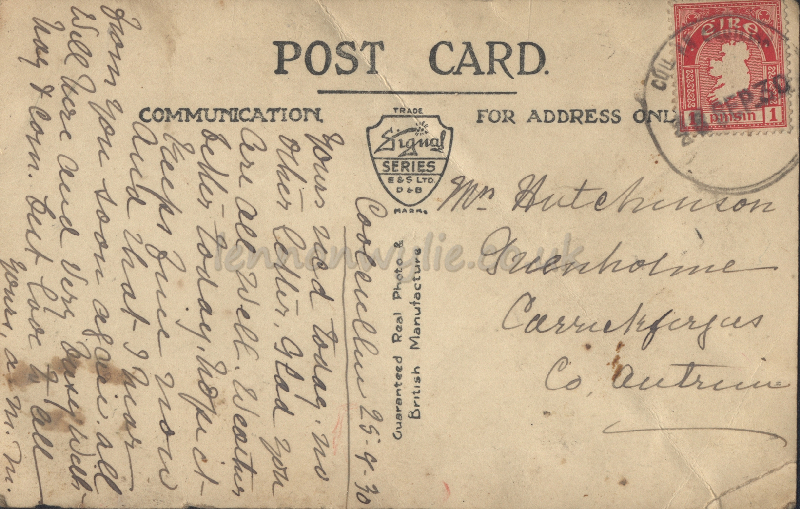 POST CARD.
COMMUNICATION.
FOR ADDRESS ONL
TRADE
Signal
SERIES
E&S LTD
D&B
MARK.
Guaranteed Real Photo &
British Manufacture
ÉIRE
1 PINGIN 1
SEP 30
25-9-30
Yours recd today. no
other letter. Glad you
are all well. Weather
better today, hope it
keeps fine now
and that I hear
from you soon again. all
well here and very busy with
hay & corn. but love to all
yours, a m. m
Mrs Hutchinson
Greenholme
Carrickfergus
Co. Antrim
lennonwylie.co.uk